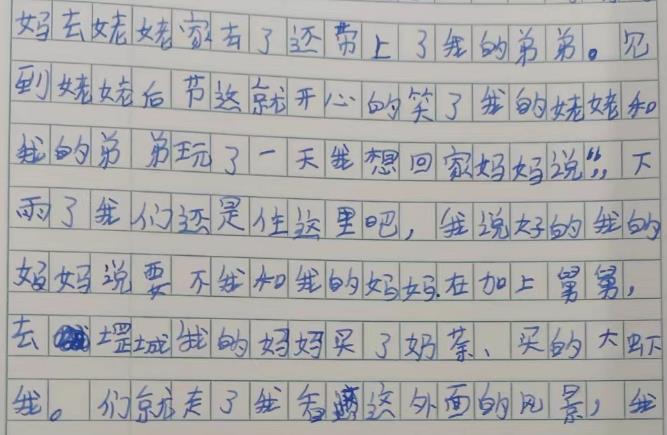 妈去姥姥家去了还带上了我的弟弟。见
到姥姥后节这就开心的笑了我的姥姥和
我的弟弟玩了一天我想回家妈妈说“,,下
雨了我们还是住这里吧，我说好的我的
妈妈说要不我和我的妈妈.在加上舅舅，
去堽城我的妈妈买了奶茶、买的大虾
我。们就走了我看这外面的风景，我